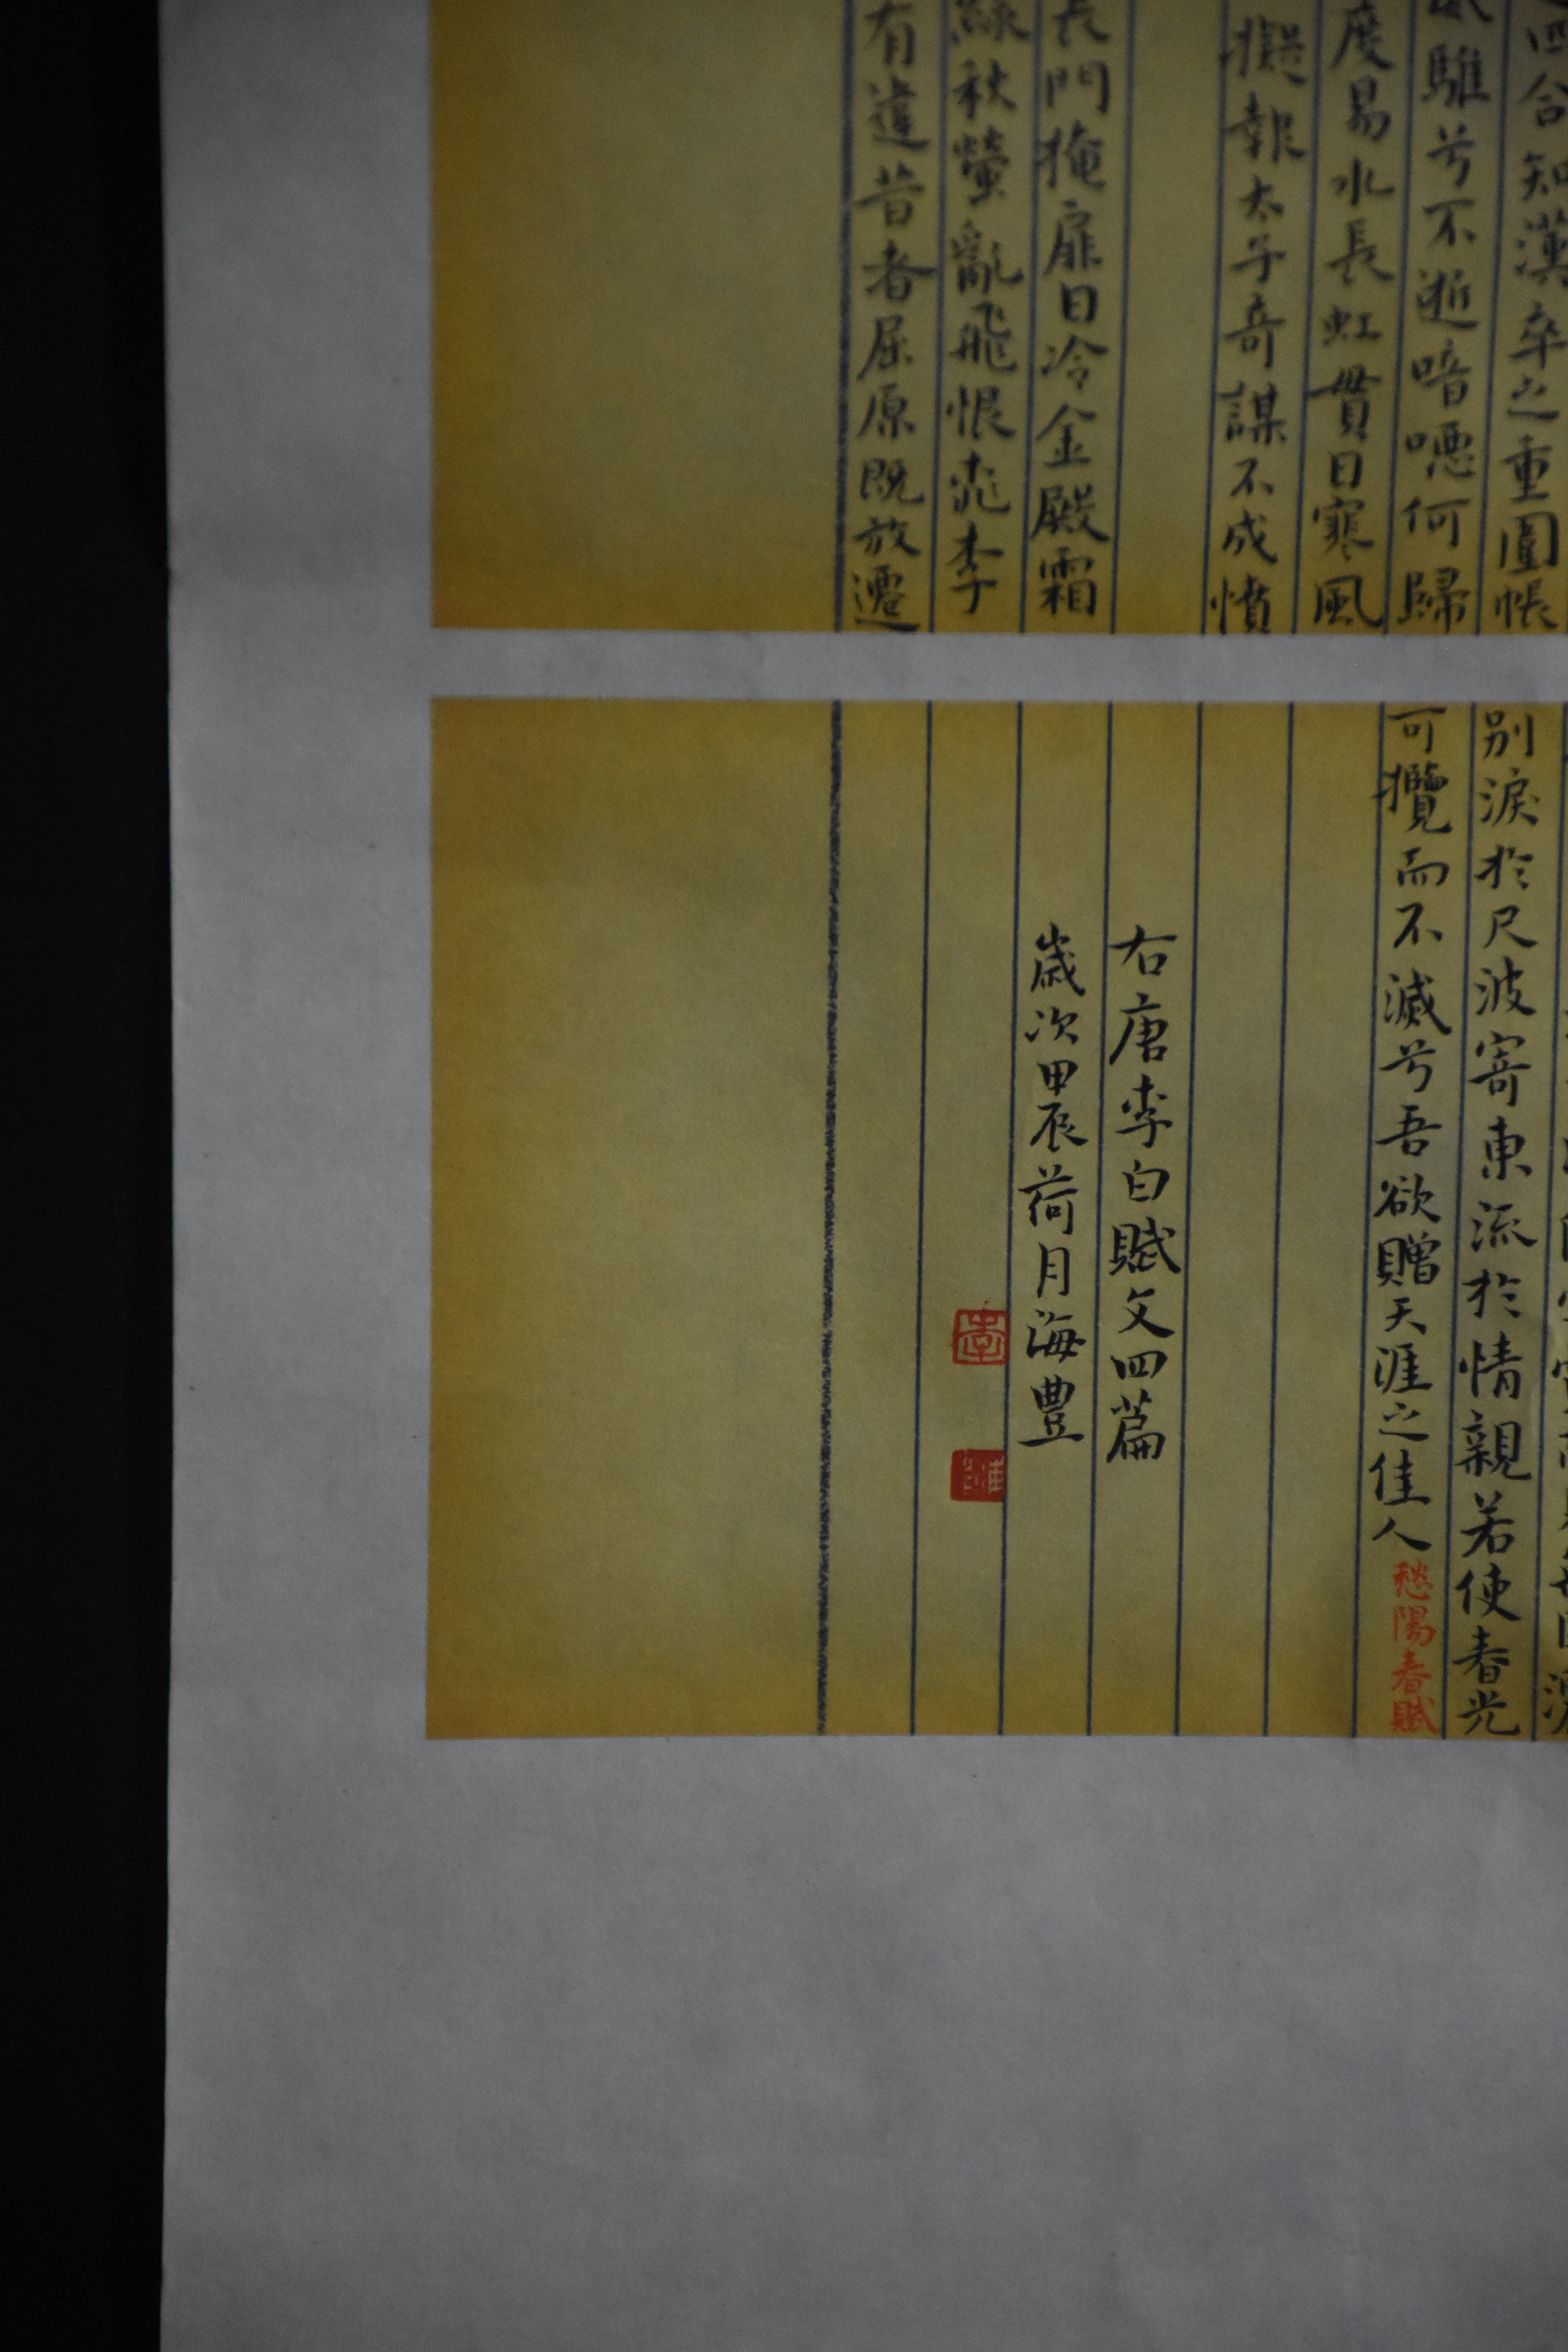 四合知漢卒之重圍帳
騅兮不逝喑噁何歸
度易水長虹貫日寒風
擬報太子奇謀不成憤
長門掩扉日冷金殿霜
綠秋螢亂飛恨桃李
有違昔者屈原既放遷
別淚於尺波寄東流於情親若使春光
可攬而不滅兮吾欲贈天涯之佳人
愁陽春賦
右唐李白賦文四篇
歲次甲辰荷月海豐
李